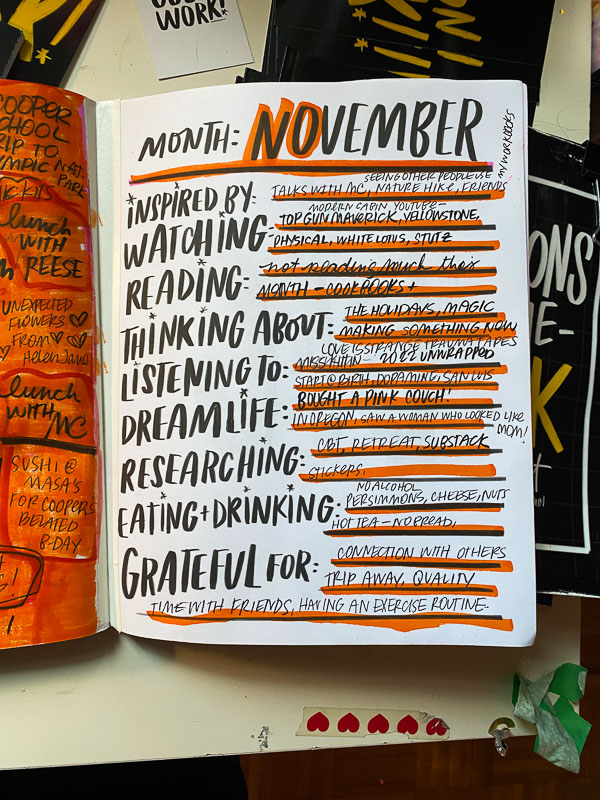 WORK!
COOPER
SCHOOL
TRIP TO
OLYMPIC NAT.
PARK
lunch
WITH
REESE
UNEXPECTED
FLOWERS
FROM
Helen Jane
lunch
WITH
MC
SUSHI @
MASA'S
FOR COOPERS
BELATED
B-DAY
MONTH: NOVEMBER
MY WORKBOOKS
SEEING OTHER PEOPLE USE
INSPIRED BY: TALKS WITH MC, NATURE HIKE, FRIENDS
MODERN CABIN YOUTUBE-
WATCHING: TOP GUN MAVERICK, YELLOWSTONE,
PHYSICAL, WHITE LOTUS, STUTZ
READING: not reading much this
MONTH - COOKBOOKS +
THINKING ABOUT: THE HOLIDAYS, MAGIC
MAKING SOMETHING NEW
LOVE IS STRANGE TRAUMA TAPES
LISTENING TO: 2022 UNWRAPPED
START @ BIRTH, DOPAMINE, SAN LUIS
DREAM LIFE: BOUGHT A PINK COUCH!
IN OREGON, SAW A WOMAN WHO LOOKED LIKE
MOM!
RESEARCHING: CBT, RETREAT, SUBSTACK
STICKERS,
NO ALCOHOL
EATING + DRINKING: PERSIMMONS, CHEESE, NUTS
HOT TEA - NO BREAD,
GRATEFUL FOR: CONNECTION WITH OTHERS
TRIP AWAY, QUALITY
TIME WITH FRIENDS, HAVING AN EXERCISE ROUTINE.
ONS
E-
K